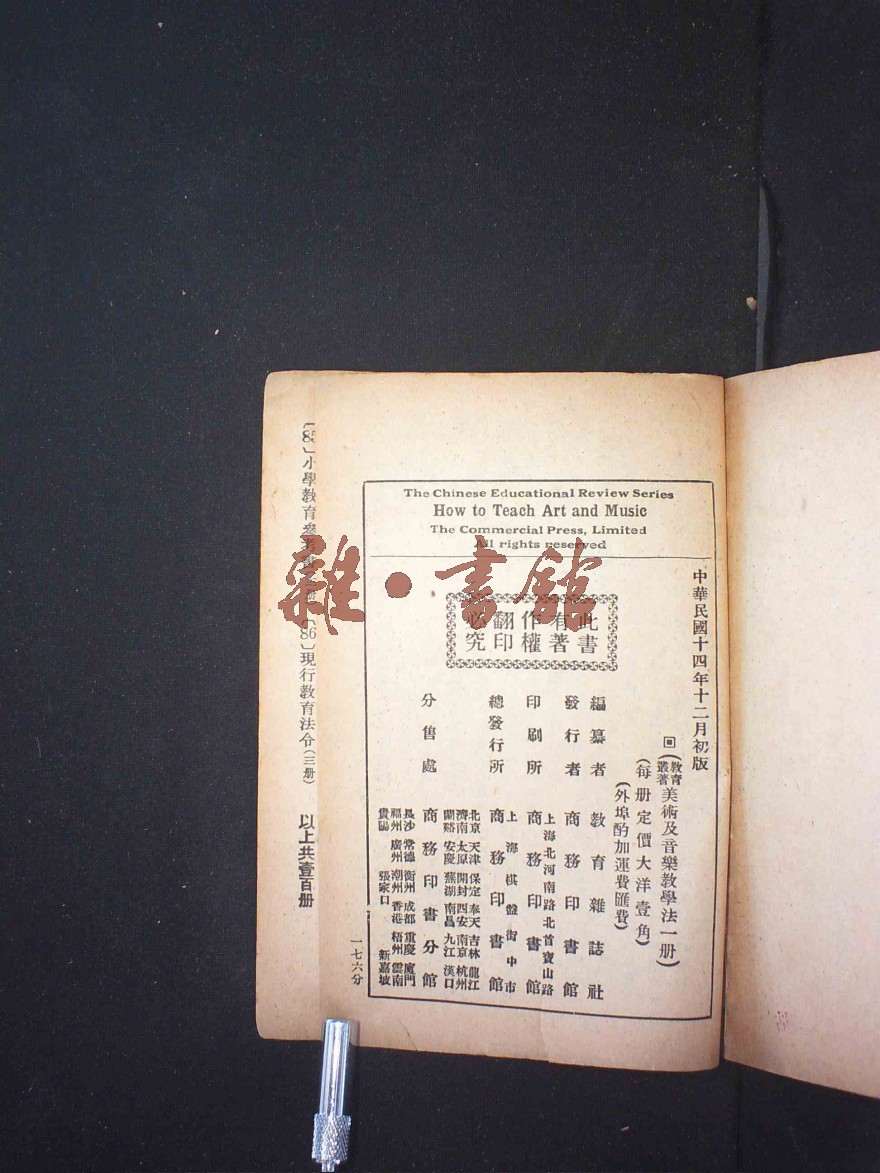 The Chinese Educational Review Series
How to Teach Art and Music
The Commercial Press, Limited
All rights reserved
中華民國十四年十二月初版
(教育叢著美術及音樂教學法一册)
(每册定價大洋壹角)
(外埠酌加運費匯費)
此書
有著
作權
翻印
必究
編纂者 教育雜誌社
發行者 商務印書館
上海北河南路北首寶山路
印刷所 商務印書館
上海棋盤街中市
總發行所 商務印書館
北京 天津 保定 奉天 吉林 龍江
濟南 太原 開封 西安 南京 杭州
蘭谿 安慶 蕪湖 南昌 九江 漢口
分售處 商務印書分館
長沙 常德 衡州 成都 重慶 廈門
福州 廣州 潮州 香港 梧州 雲南
貴陽 張家口 新嘉坡
一七六分
〔85〕小學教育參
〔86〕現行教育法令(三册) 以上共壹百册
雜·書館